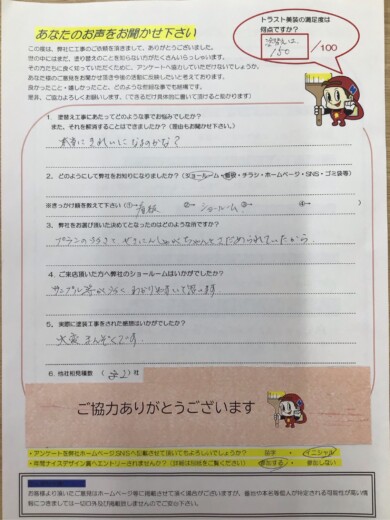 あなたのお声をお聞かせ下さい
トラスト美装の満足度は
何点ですか?
150
/100
この度は、弊社に工事のご依頼を頂きまして、ありがとうございました。
世の中にはまだ、塗り替えのことを知らない方がたくさんいらっしゃいます。
その方たちに良く知っていただくために、アンケートへ協力していただけないでしょうか。
あなた様のご意見をお聞かせ頂き今後の活動に反映したいと考えております。
良かったこと・嬉しかったこと、どのような些細な事でも結構です。
是非、ご協力よろしくお願いします。(できるだけ具体的に書いて頂けると助かります)
1. 塗替え工事にあたってどのような事でお悩みでしたか?
また、それを解消することはできましたか?(理由もお聞かせ下さい)
本当にきれいになるのかな?
2. どのようにして弊社をお知りになりましたか?(ショールーム・看板・チラシ・ホームページ・SNS・ゴミ袋等)
※きっかけ順を教えて下さい(①→ 看板 ②→ ショールーム ③→ ④→ )
3. 弊社をお選び頂いた決めてとなったのはどのような所ですか?
4. ご来店頂いた方へ弊社のショールームはいかがでしたか?
5. 実際に塗装工事をされた感想はいかがでしたか?
大変まんぞくです
6. 他社相見積数 ( 2 )社
ご協力ありがとうございます
・アンケートを弊社ホームページ、SNSへ記載させて頂いてもよろしいでしょうか? 苗字 ・ イニシャル
・年間ナイスデザイン賞へエントリーされませんか?(詳細は別紙をご覧ください) 参加する ・ 参加しない
お客様より頂いたご意見はホームページ等に掲載させて頂く場合がございますが、
につきましては一切口外及び掲載致しませんのでご安心下さい。